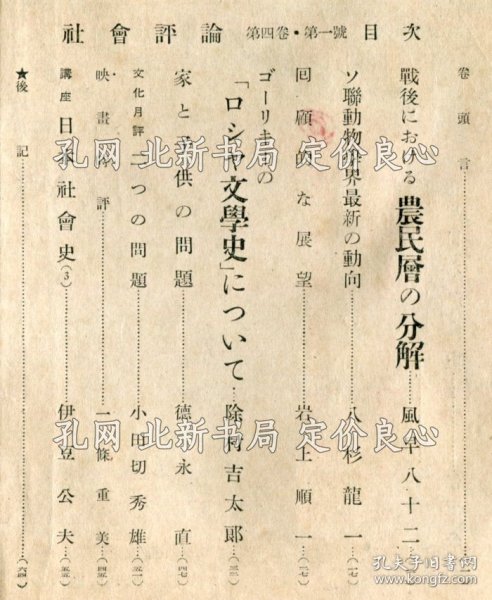 社會評論 第四卷・第一號 目次
卷頭言
戰後における農民層の分解 風早八十二
ソ聯動物學界最新の動向 八杉龍一 (一七)
回顧的な展望 岩上順一 (二七)
ゴーリキイの
「ロシヤ文學史」について 除村吉太郎 (三三)
家と子供の問題 德永直 (四七)
文化月評 二つの問題 小田切秀雄 (五一)
映畫時評 一條重美 (四五)
講座 日本社會史(3) 伊豆公夫 (五五)
★後記 (六四)
孔网 北新书局 定价良心
孔网 北新书局 定价良心
孔夫子旧书网
www.kongfz.com